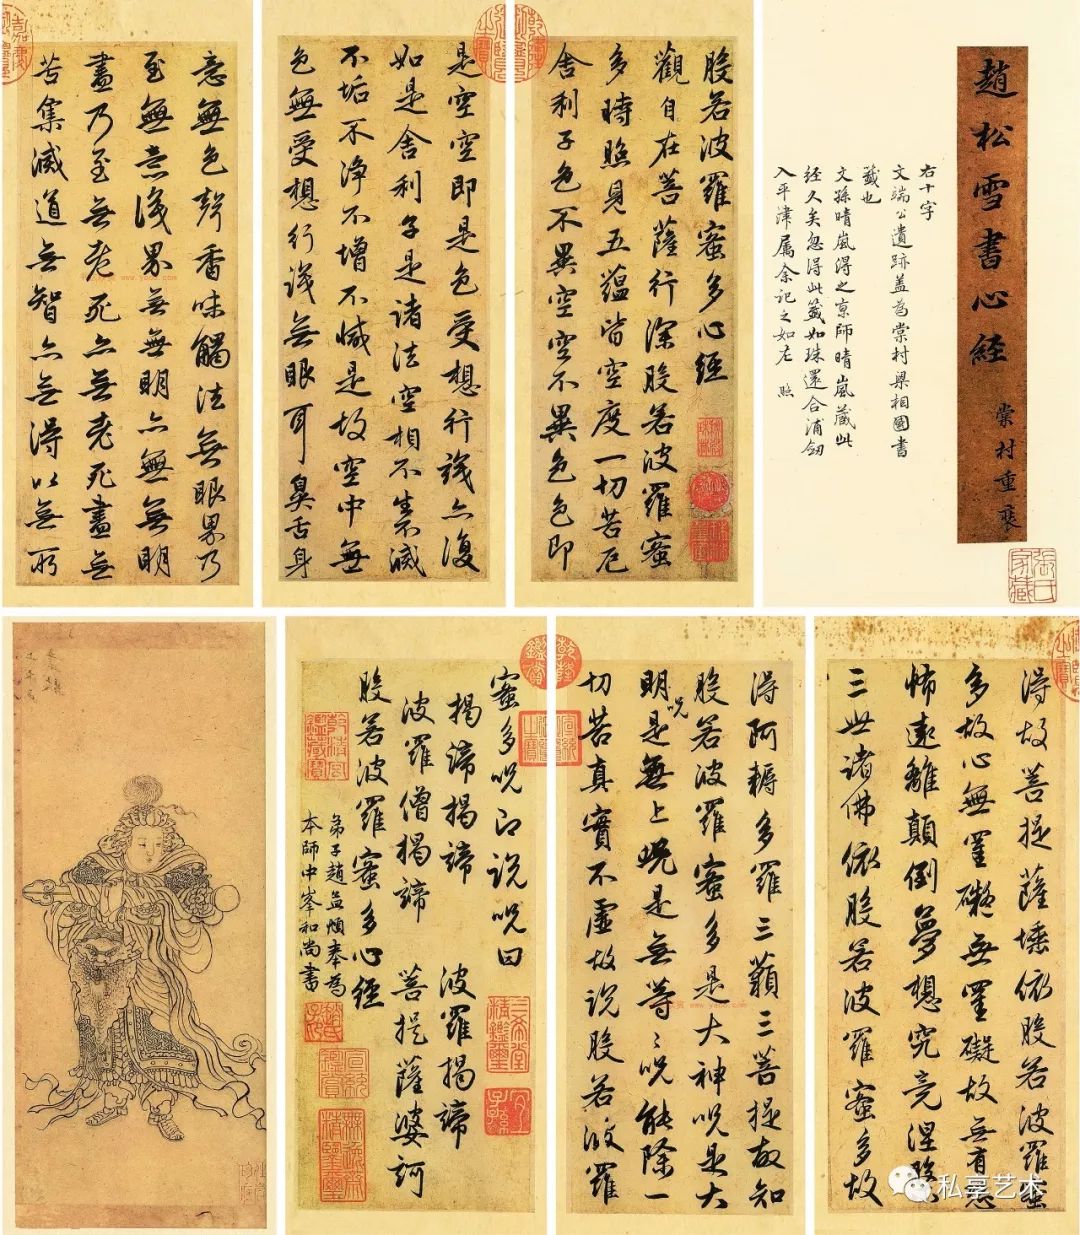 趙松雪書心經
棠村重裝
右十字
文端公遺跡蓋為棠村梁相國書
籤也
文孫晴嵐得之京師晴嵐藏此
經久矣忽得此籤如珠還合浦劍
入平津属余記之如左 照
張氏家藏
般若波羅蜜多心經
觀自在菩薩行深般若波羅蜜
多時照見五蘊皆空度一切苦厄
舍利子色不異空空不異色色即
是空空即是色受想行識亦復
如是舍利子是諸法空相不生不滅
不垢不淨不增不減是故空中無
色無受想行識無眼耳鼻舌身
意無色聲香味觸法無眼界乃
至無意識界無無明亦無無明
盡乃至無老死亦無老死盡無
苦集滅道無智亦無得以無所
得故菩提薩埵依般若波羅蜜
多故心無罣礙無罣礙故無有恐
怖遠離顛倒夢想究竟涅槃
三世諸佛依般若波羅蜜多故
得阿耨多羅三藐三菩提故知
般若波羅蜜多是大神呪是大
明呪是無上呪是無等〻呪能除一
切苦真實不虛故說般若波羅
蜜多呪即說呪曰
揭諦揭諦 波羅揭諦
波羅僧揭諦 菩提薩婆訶
般若波羅蜜多心經
弟子趙孟頫奉為
本師中峯和尚書
三希堂精鑑璽
宜子孫
宣統鑑賞
無逸齋精鑑璽
乾隆鑑賞
私享艺术